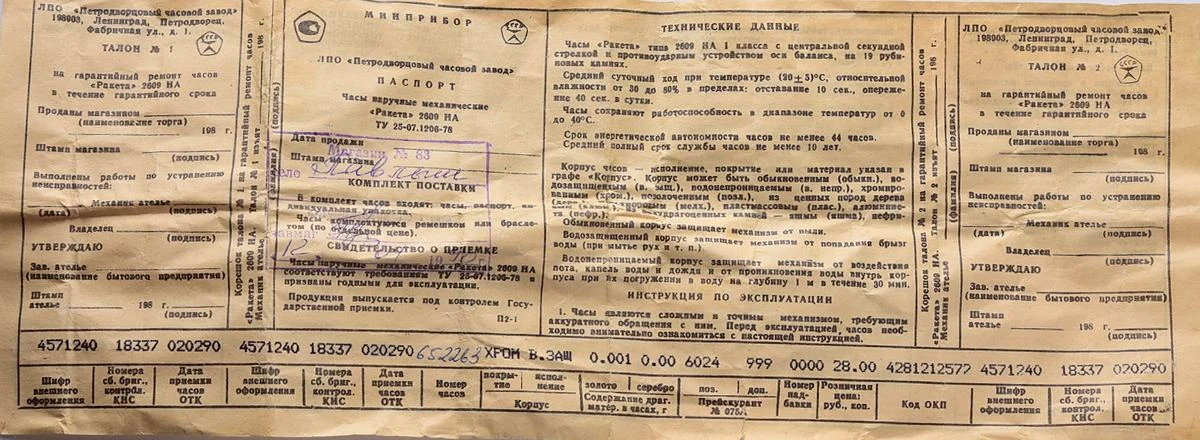 ЛПО «Петродворцовый часовой завод»
198903, Ленинград, Петродворец,
Фабричная ул., д. 1.
ТАЛОН № 1
на гарантийный ремонт часов
«Ракета» 2609 НА
в течение гарантийного срока
Проданы магазином
(наименование торга)
198 г.
Штамп магазина
(подпись)
Выполнены работы по устранению
неисправностей:
Механик ателье
(дата) (подпись)
Владелец
(подпись)
УТВЕРЖДАЮ
Зав. ателье
(наименование бытового предприятия)
Штамп
ателье 198 г.
(подпись)
Корешок талона № 1 на гарантийный ремонт часов
«Ракета» 2609 НА. Талон № 1 изъят 198 г.
Механик ателье
(фамилия) (подпись)
МИНПРИБОР
ЛПО «Петродворцовый часовой завод»
ПАСПОРТ
Часы наручные механические
«Ракета» 2609 НА
ТУ 25-07.1206-78
Дата продажи
Магазин № 83
Штамп магазина
КОМПЛЕКТ ПОСТАВКИ
В комплект часов входят: часы, паспорт, ин-
дивидуальная упаковка.
Часы комплектуются ремешком или брасле-
том (по отдельной цене).
СВИДЕТЕЛЬСТВО О ПРИЕМКЕ
Часы наручные механические «Ракета» 2609 НА
соответствуют требованиям ТУ 25-07.1206-78 и
признаны годными для эксплуатации.
Продукция выпускается под контролем Госу-
дарственной приемки.
П2-1
ТЕХНИЧЕСКИЕ ДАННЫЕ
Часы «Ракета» типа 2609 НА I класса с центральной секундной
стрелкой и противоударным устройством оси баланса, на 19 руби-
новых камнях.
Средний суточный ход при температуре (20±5)°С, относительной
влажности от 30 до 80% в пределах: отставание 10 сек., опереже-
ние 40 сек. в сутки.
Часы сохраняют работоспособность в диапазоне температур от 0
до 40°С.
Срок энергетической автономности часов не менее 44 часов.
Средний полный срок службы часов не менее 10 лет.
Корпус часов — исполнение, покрытие или материал указан в
графе «Корпус». Корпус может быть обыкновенным (обыкн.), во-
дозащищенным (в. защ.), водонепроницаемым (в. непр.), хромиро-
ванным (хром.), позолоченным (позл.), из ценных пород дерева
(мех.), пластмассовым (плас.), алюминие-
камней — яшмы (яшма), нефри-
та (нефр.).
Обыкновенный корпус защищает механизм от пыли.
Водозащищенный корпус защищает механизм от попадания брызг
воды (при мытье рук и т. п.).
Водонепроницаемый корпус защищает механизм от воздействия
пота, капель воды и дождя и от проникновения воды внутрь кор-
пуса при их погружении в воду на глубину 1 м в течение 30 мин.
ИНСТРУКЦИЯ ПО ЭКСПЛУАТАЦИИ
1. Часы являются сложным и точным механизмом, требующим
аккуратного обращения с ним. Перед эксплуатацией, часов необ-
ходимо внимательно ознакомиться с настоящей инструкцией.
Корешок талона № 2 на гарантийный ремонт часов
«Ракета» 2609 НА. Талон № 2 изъят 198 г.
Механик ателье
(фамилия) (подпись)
ЛПО «Петродворцовый часовой завод»
198903, Ленинград, Петродворец,
Фабричная ул., д. 1.
ТАЛОН № 2
на гарантийный ремонт часов
«Ракета» 2609 НА
в течение гарантийного срока
Проданы магазином
(наименование торга)
198 г.
Штамп магазина
(подпись)
Выполнены работы по устранению
неисправностей:
Механик ателье
(дата) (подпись)
Владелец
(подпись)
УТВЕРЖДАЮ
Зав. ателье
(наименование бытового предприятия)
Штамп
ателье 198 г.
(подпись)
4571240 18337 020290 4571240 18337 020290 652263 ХРОМ В.ЗАЩ 0.001 0.00 6024 999 0000 28.00 4281212572 4571240 18337 020290
Шифр внешнего оформления
Номера сб. бриг., контрол. КНС
Дата приемки часов ОТК
Шифр внешнего оформления
Номера сб. бриг., контрол. КНС
Дата приемки часов ОТК
Номер часов
покры-тие испол-нение
Корпус
золото серебро
Содержание драг. матер. в часах, г
поз. доп.
Прейскурант № 075А
Номер над-бавки
Розничная цена: руб., коп.
Код ОКП
Шифр внешнего оформления
Номера сб. бриг., контрол. КНС
Дата приемки часов ОТК